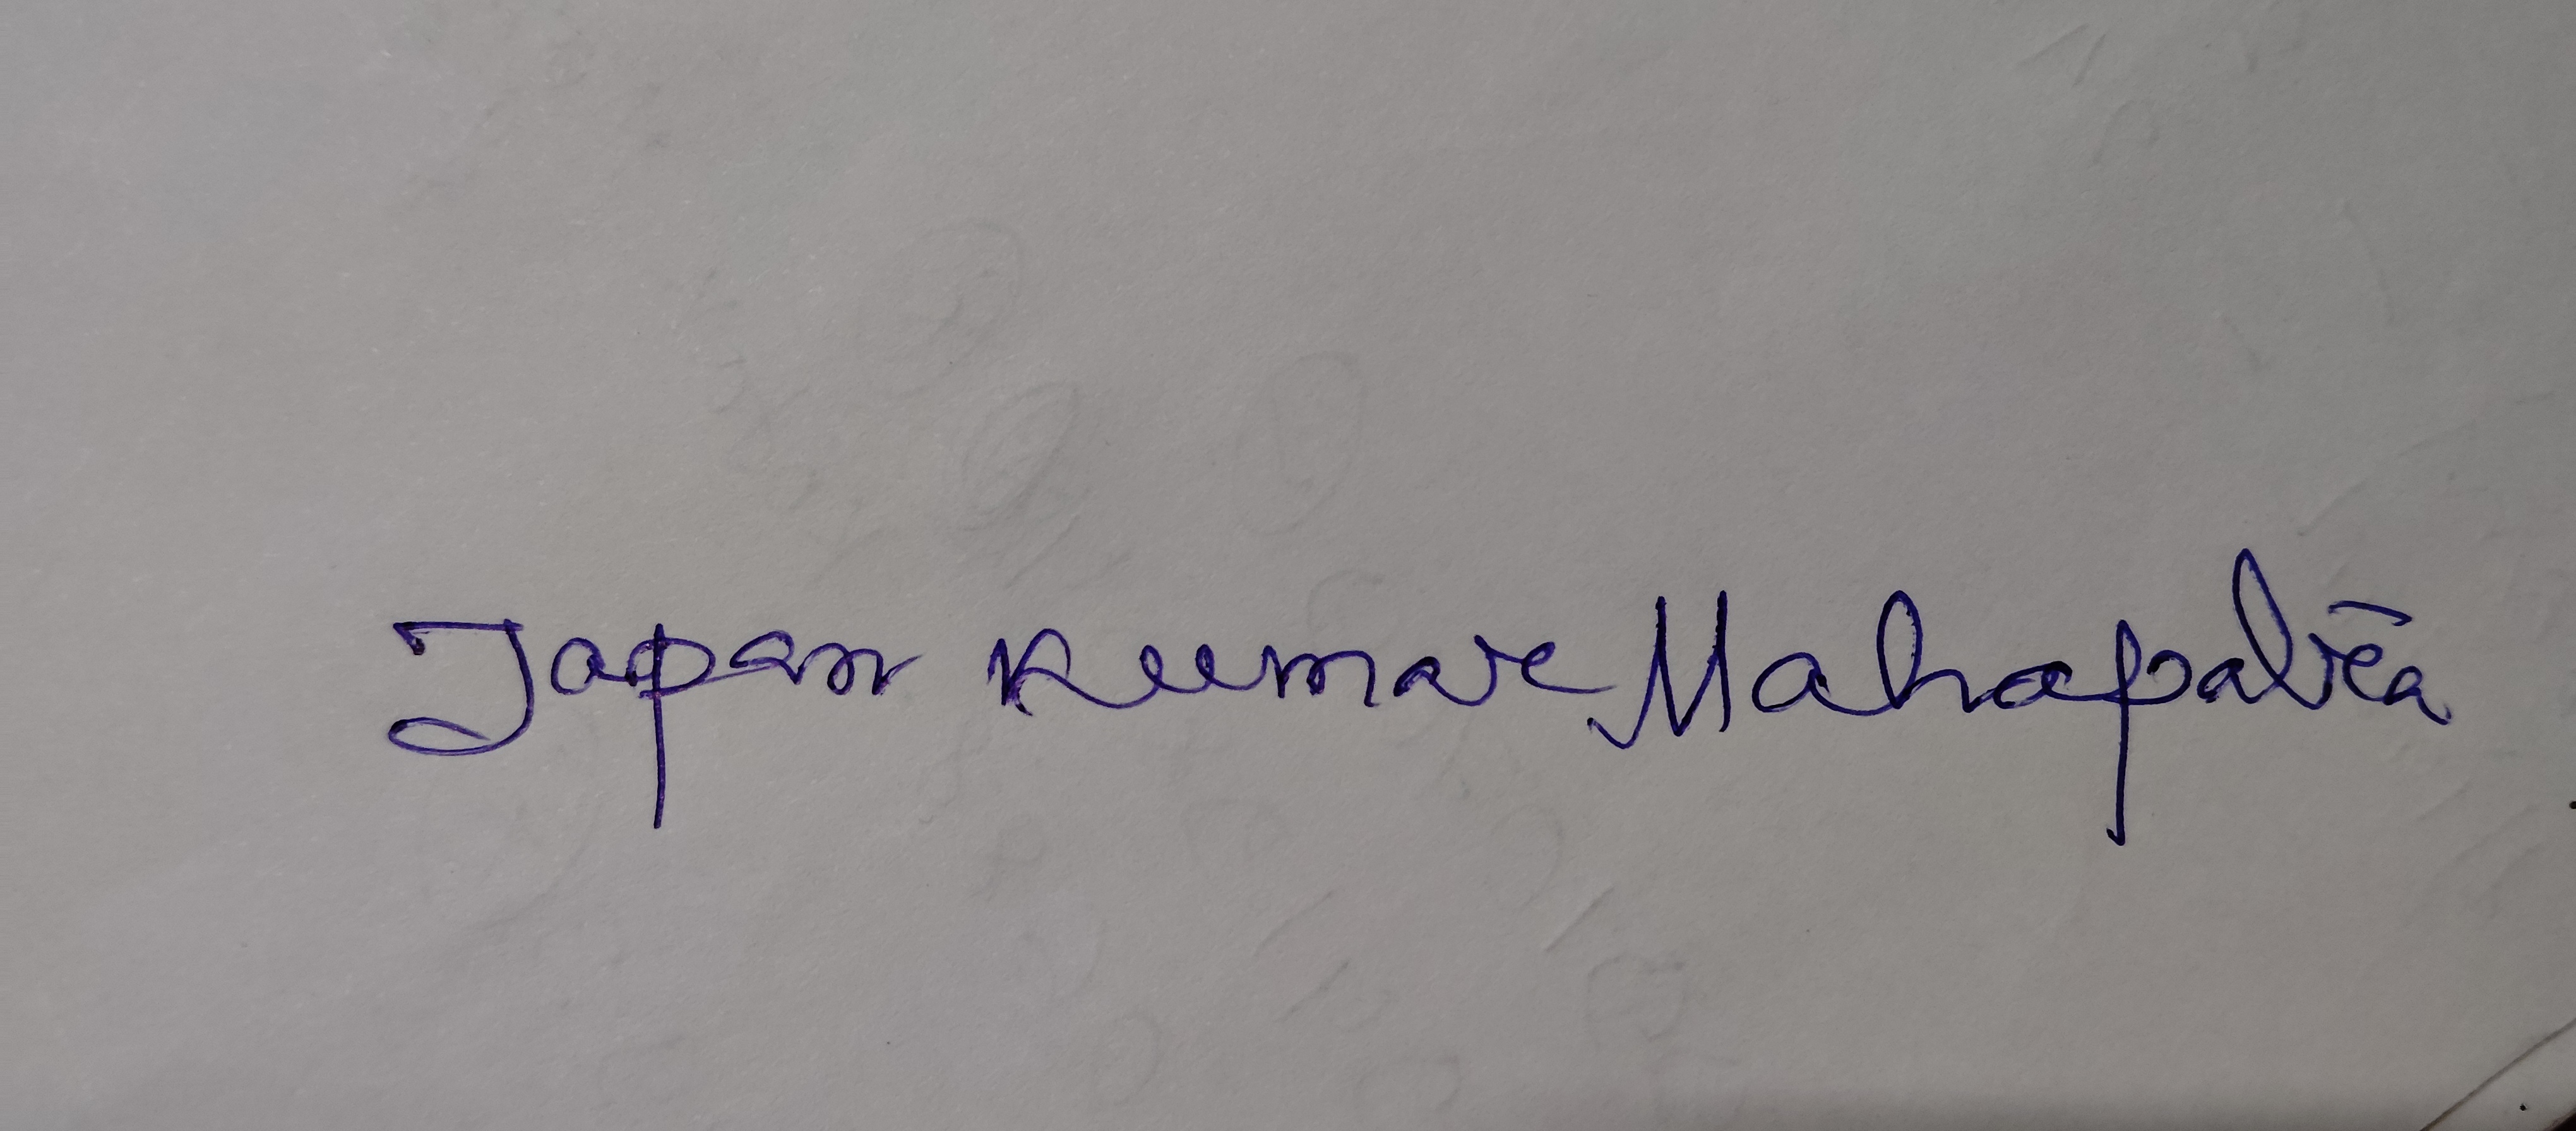 Tapan Kumar Mahapatra